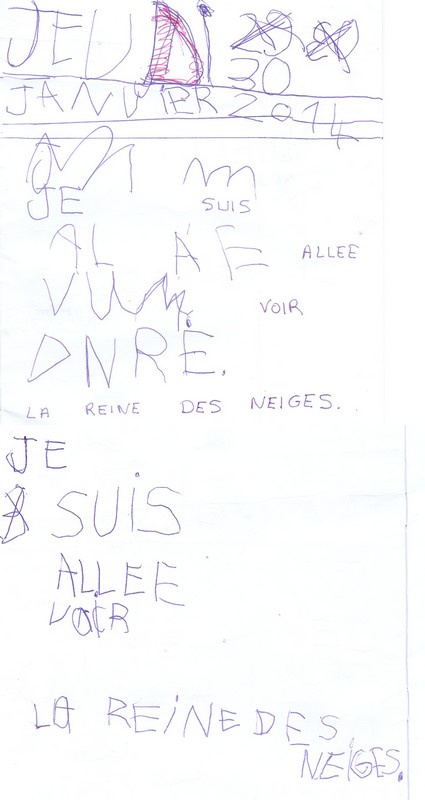 JEUDI
30
JANVIER 2014
JE SUIS
AL A E ALLEE
VU VOIR
DNRE.
LA REINE DES NEIGES.
JE
SUiS
ALLEE
VOIR
LA REiNE DES
NEIGES.